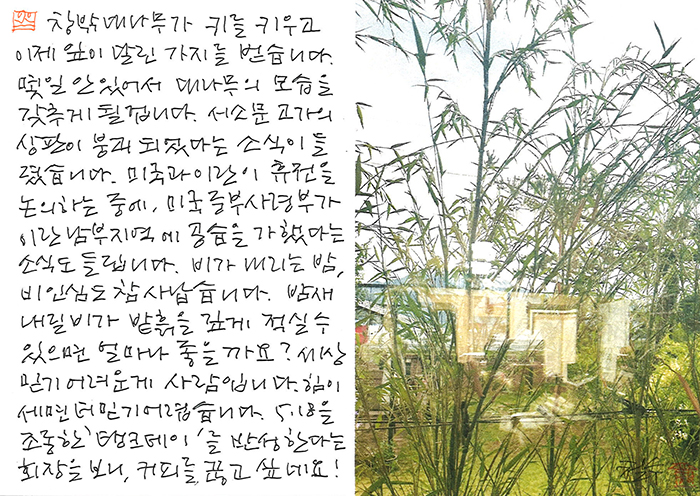 창밖 대나무가 키를 키우고
이제 잎이 달린 가지를 벋습니다.
몇일 안 있어서 대나무의 모습을
갖추게 될겁니다. 서소문 고가의
상판이 붕괴 되었다는 소식이 들
렸습니다. 미국과 이란이 휴전을
논의하는 중에, 미국 중부사령부가
이란 남부지역에 공습을 가했다는
소식도 들립니다. 비가 내리는 밤,
비인심도 참 사납습니다. 밤새
내릴 비가 밭흙을 깊게 적실 수
있으면 얼마나 좋을까요? 세상
믿기 어려운게 사람입니다. 힘이
세면 더 믿기 어렵습니다. 5.18을
조롱한 '탱크데이'를 반성한다는
회장을 보니, 커피를 끊고 싶네요!